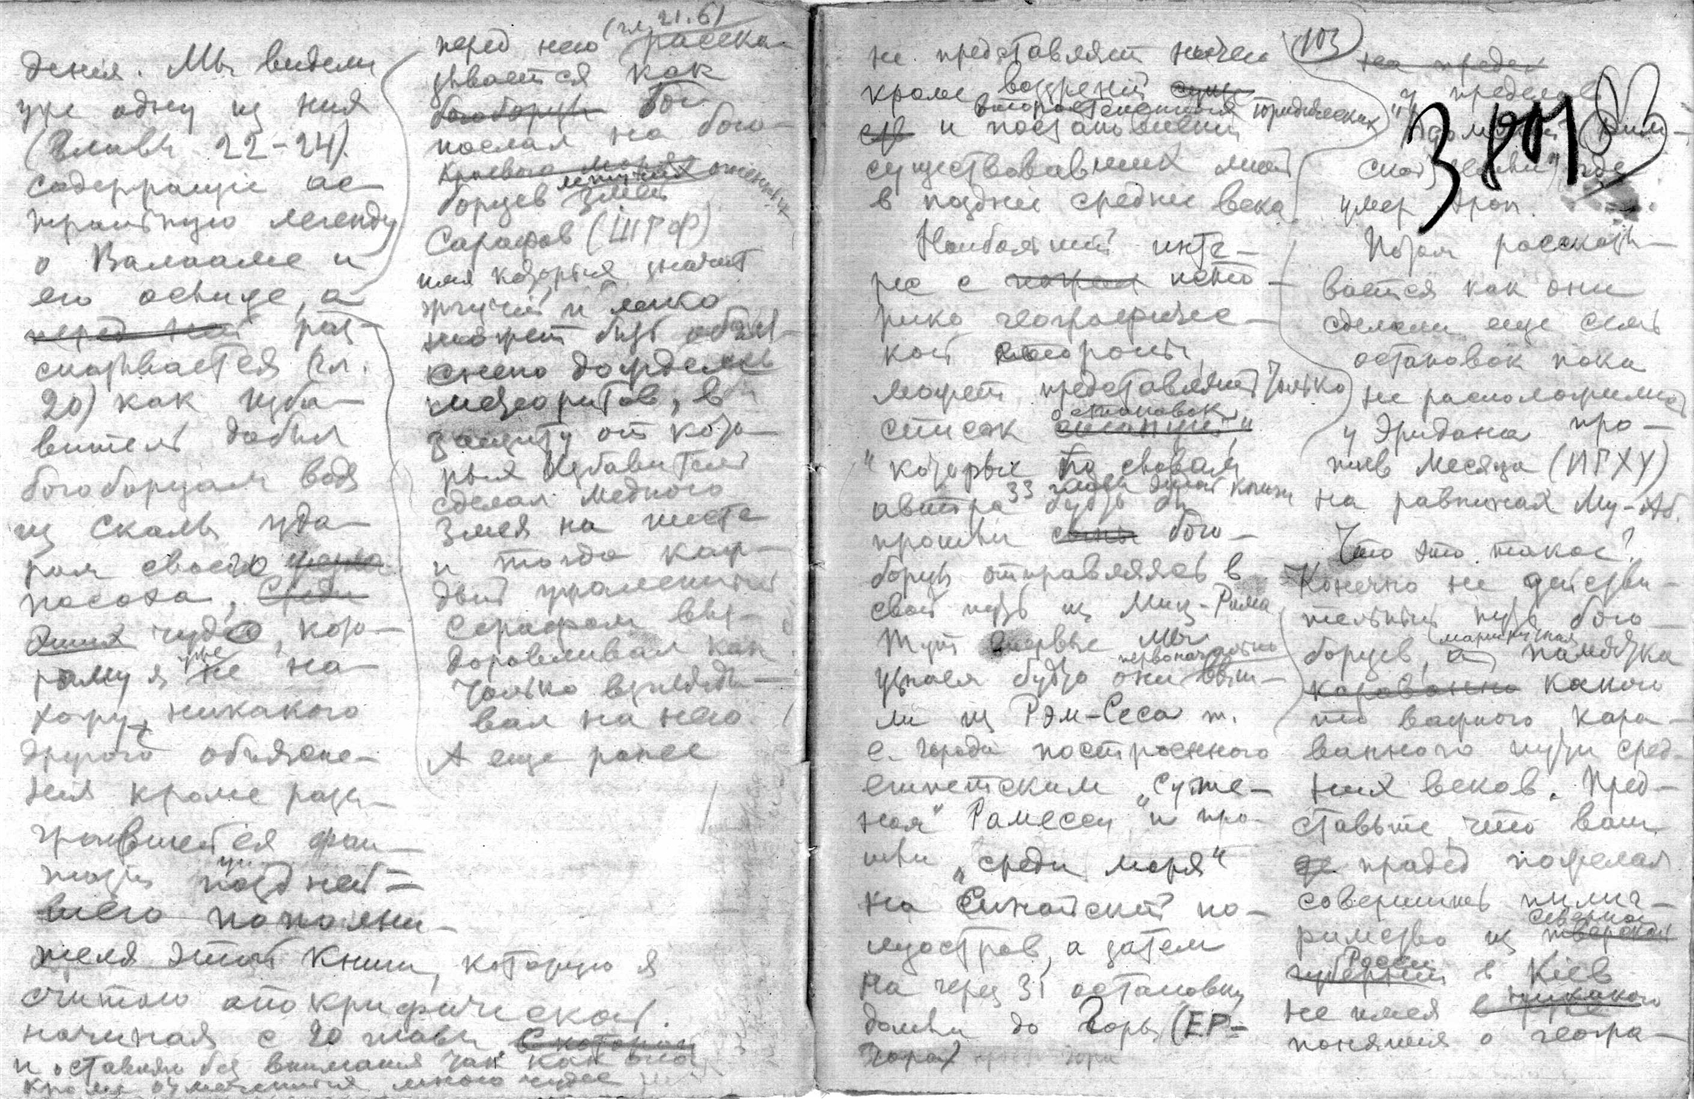 дения. Мы видели
уже одну из них
(Главы 22-24).
содержащие ас-
тральную легенду
о Валааме и
его ослице, а
перед ней рас-
сказывается (гл.
20) как изба-
витель добыл
богоборцам воду
из скалы уда-
ром своего жезла
посоха, Среди
этих чудо, кото-
рому я уже не на-
хожу никакого
другого объясне-
ния кроме разы-
гравшейся фан-
тазии поздней-
шего пополни-
теля этой книги, которую я
считаю апокрифической
начиная с 20 главы в которой
и оставляю без внимания так как она
кроме
много чудес
перед нею (гл. 21.6) расска-
зывается как
богоборцы Бог
послал на бого-
борцев летучих змей
Сарафов (ШРФ)
имя которых значит
жгучий и легко
может быть объяс-
нено дождем
метеоритов, в
защиту от кото-
рых Избавитель
сделал медного
Змея на шесте
и тогда каж-
дый ужаленный
Серафом выз-
доравливал как
только взгляды-
вал на него.
А еще ранее
не представляет ничего
кроме воззрений
и постановлений юридических
существовавших лишь
в поздние средние века.
Наибольший инте-
рес с исто-
рико географичес-
кой стороны
может представлять только
список остановок
которых по словам
автора 33 главы этой книги будто бы
прошли сыны бого-
борцы отправляясь в
свой путь из Миц-Рима
Тут впервые мы
узнаем будто они первоначально выш-
ли из Рэм-Сеса т.
е. города построенного
египетским „Суже-
ная" Рамесеи и про-
шли „среди моря"
на Синайский по-
луостров, а затем
на через 31 остановку
дошли до Горы (ЕР-
103
на предел
у пределов
3 801
где
умер Арон.
Потом рассказы-
вается как они
сделали еще семь
остановок пока
не расположились
у Эридана про-
тив Месяца (ИРХУ)
на равнинах Му-Аб.
Что это такое?
Конечно не действи-
тельный путь бого-
борцев, а памятка
какого
то важного кара-
ванного пути сред-
них веков. Пред-
ставьте, что ваш
прадед пожелал
совершить пилиг-
римство из Тверской северной
губернии России в Киев
не имея никакого
понятия о геогра-